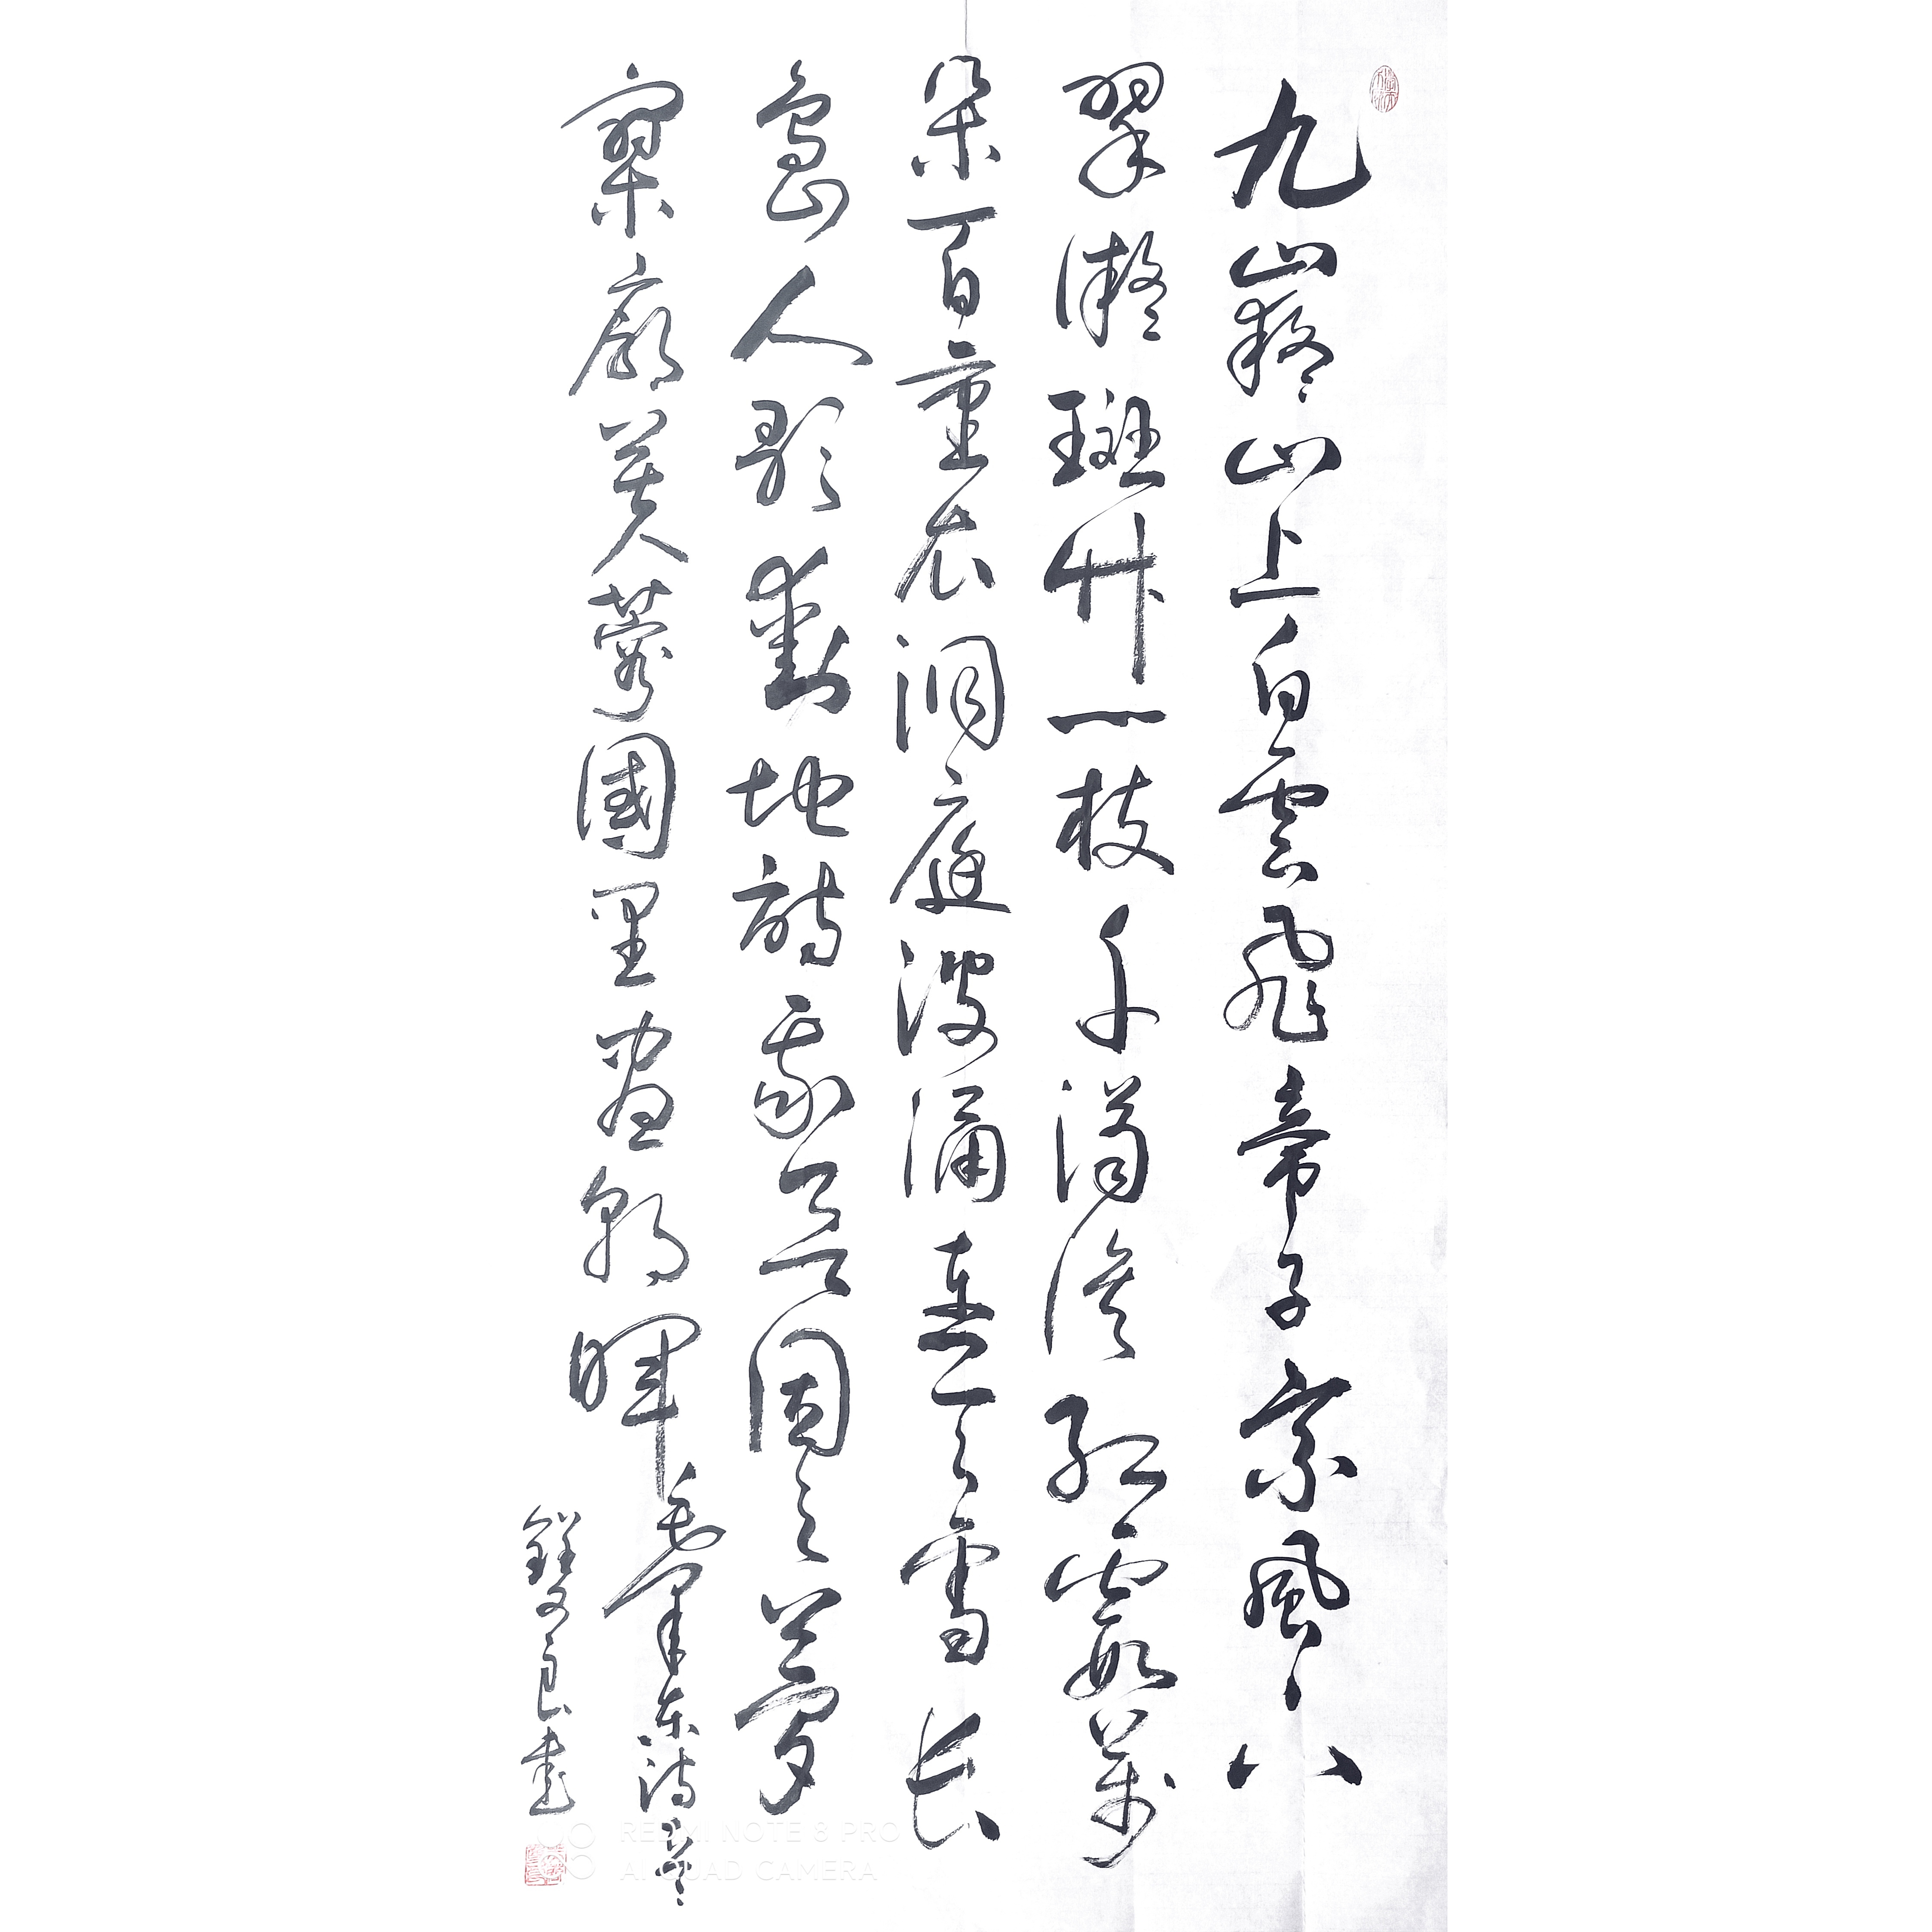 九嶷山上白雲飛帝子乘風下
翠微斑竹一枝千滴淚紅霞萬
朵百重衣洞庭波涌連天雪长
島人歌動地詩我欲因之夢
寥廓芙蓉國里盡朝暉 毛澤東詩
文良書
REDMI NOTE 8 PRO
AI QUAD CAMERA